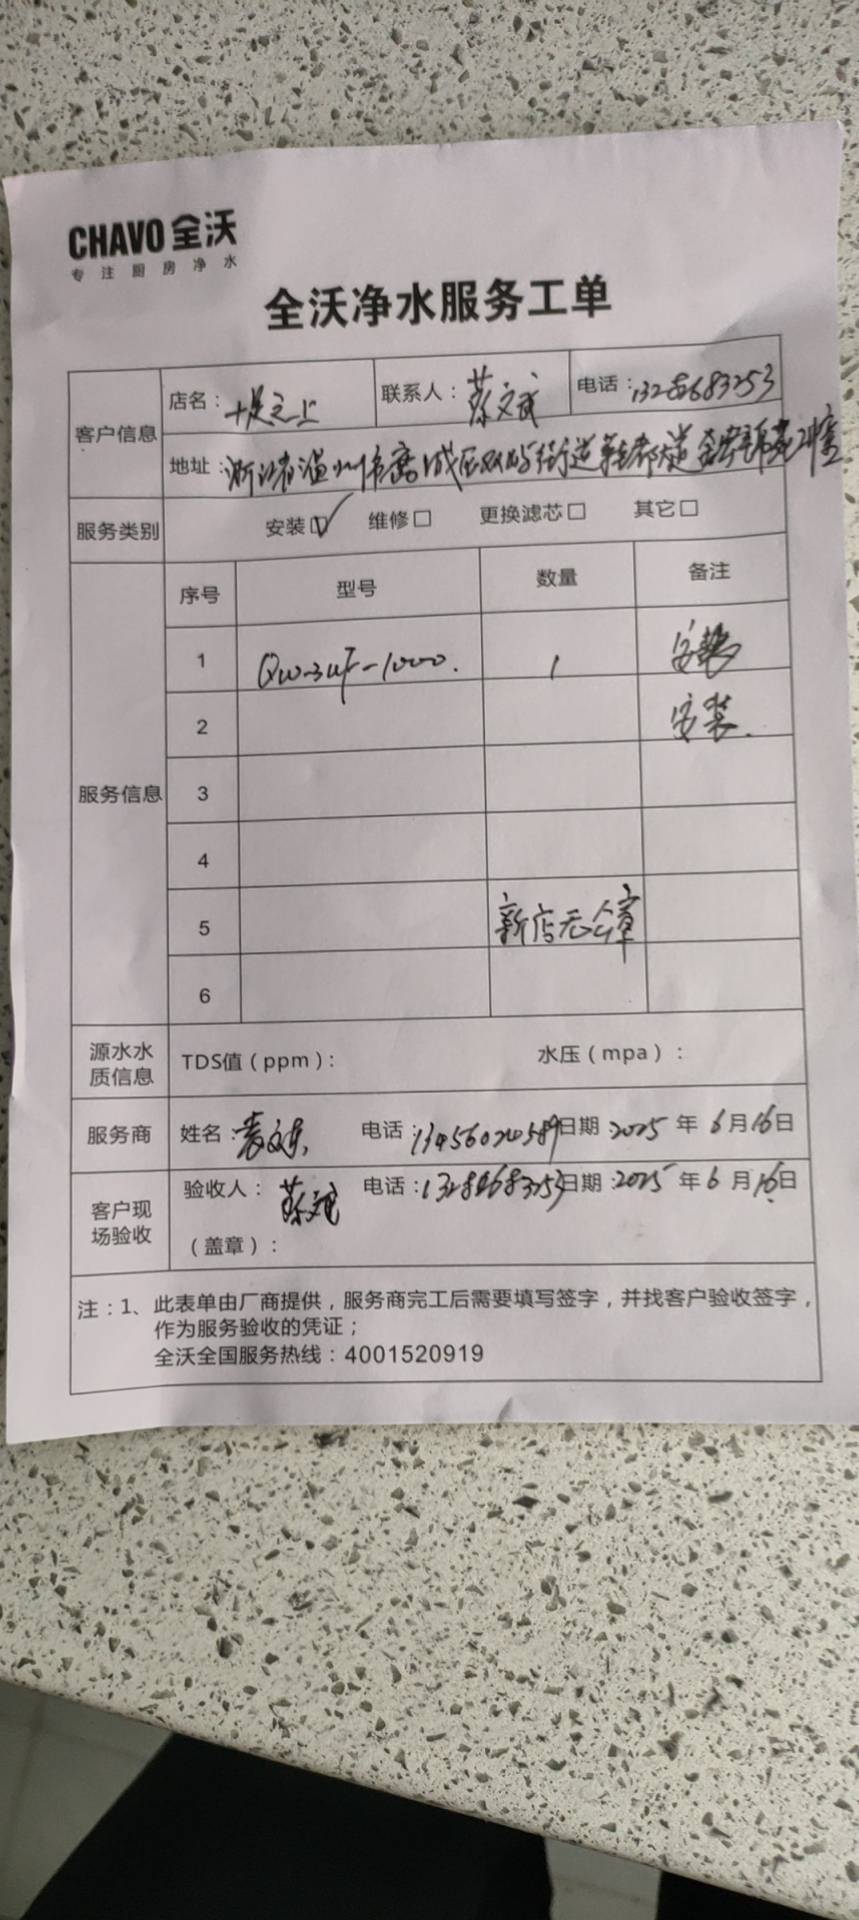 CHAVO 全沃
专注厨房净水
全沃净水服务工单
客户信息
店名：足之上 联系人：蔡文斌 电话：13282683253
地址：浙江省温州市鹿城区双屿街道鞋都大道
服务类别 安装☑ 维修□ 更换滤芯□ 其它□
服务信息
序号 型号 数量 备注
1 QW-3UF-1000. 1
2 安装.
3
4
5 新店无公章
6
源水水质信息 TDS值（ppm）： 水压（mpa）：
服务商 姓名： 电话：13456020589 日期 2025 年 6 月 16 日
客户现场验收 验收人：蔡文斌 电话： 日期：2025 年 6 月 16 日
（盖章）：
注：1、此表单由厂商提供，服务商完工后需要填写签字，并找客户验收签字，
作为服务验收的凭证；
全沃全国服务热线：4001520919